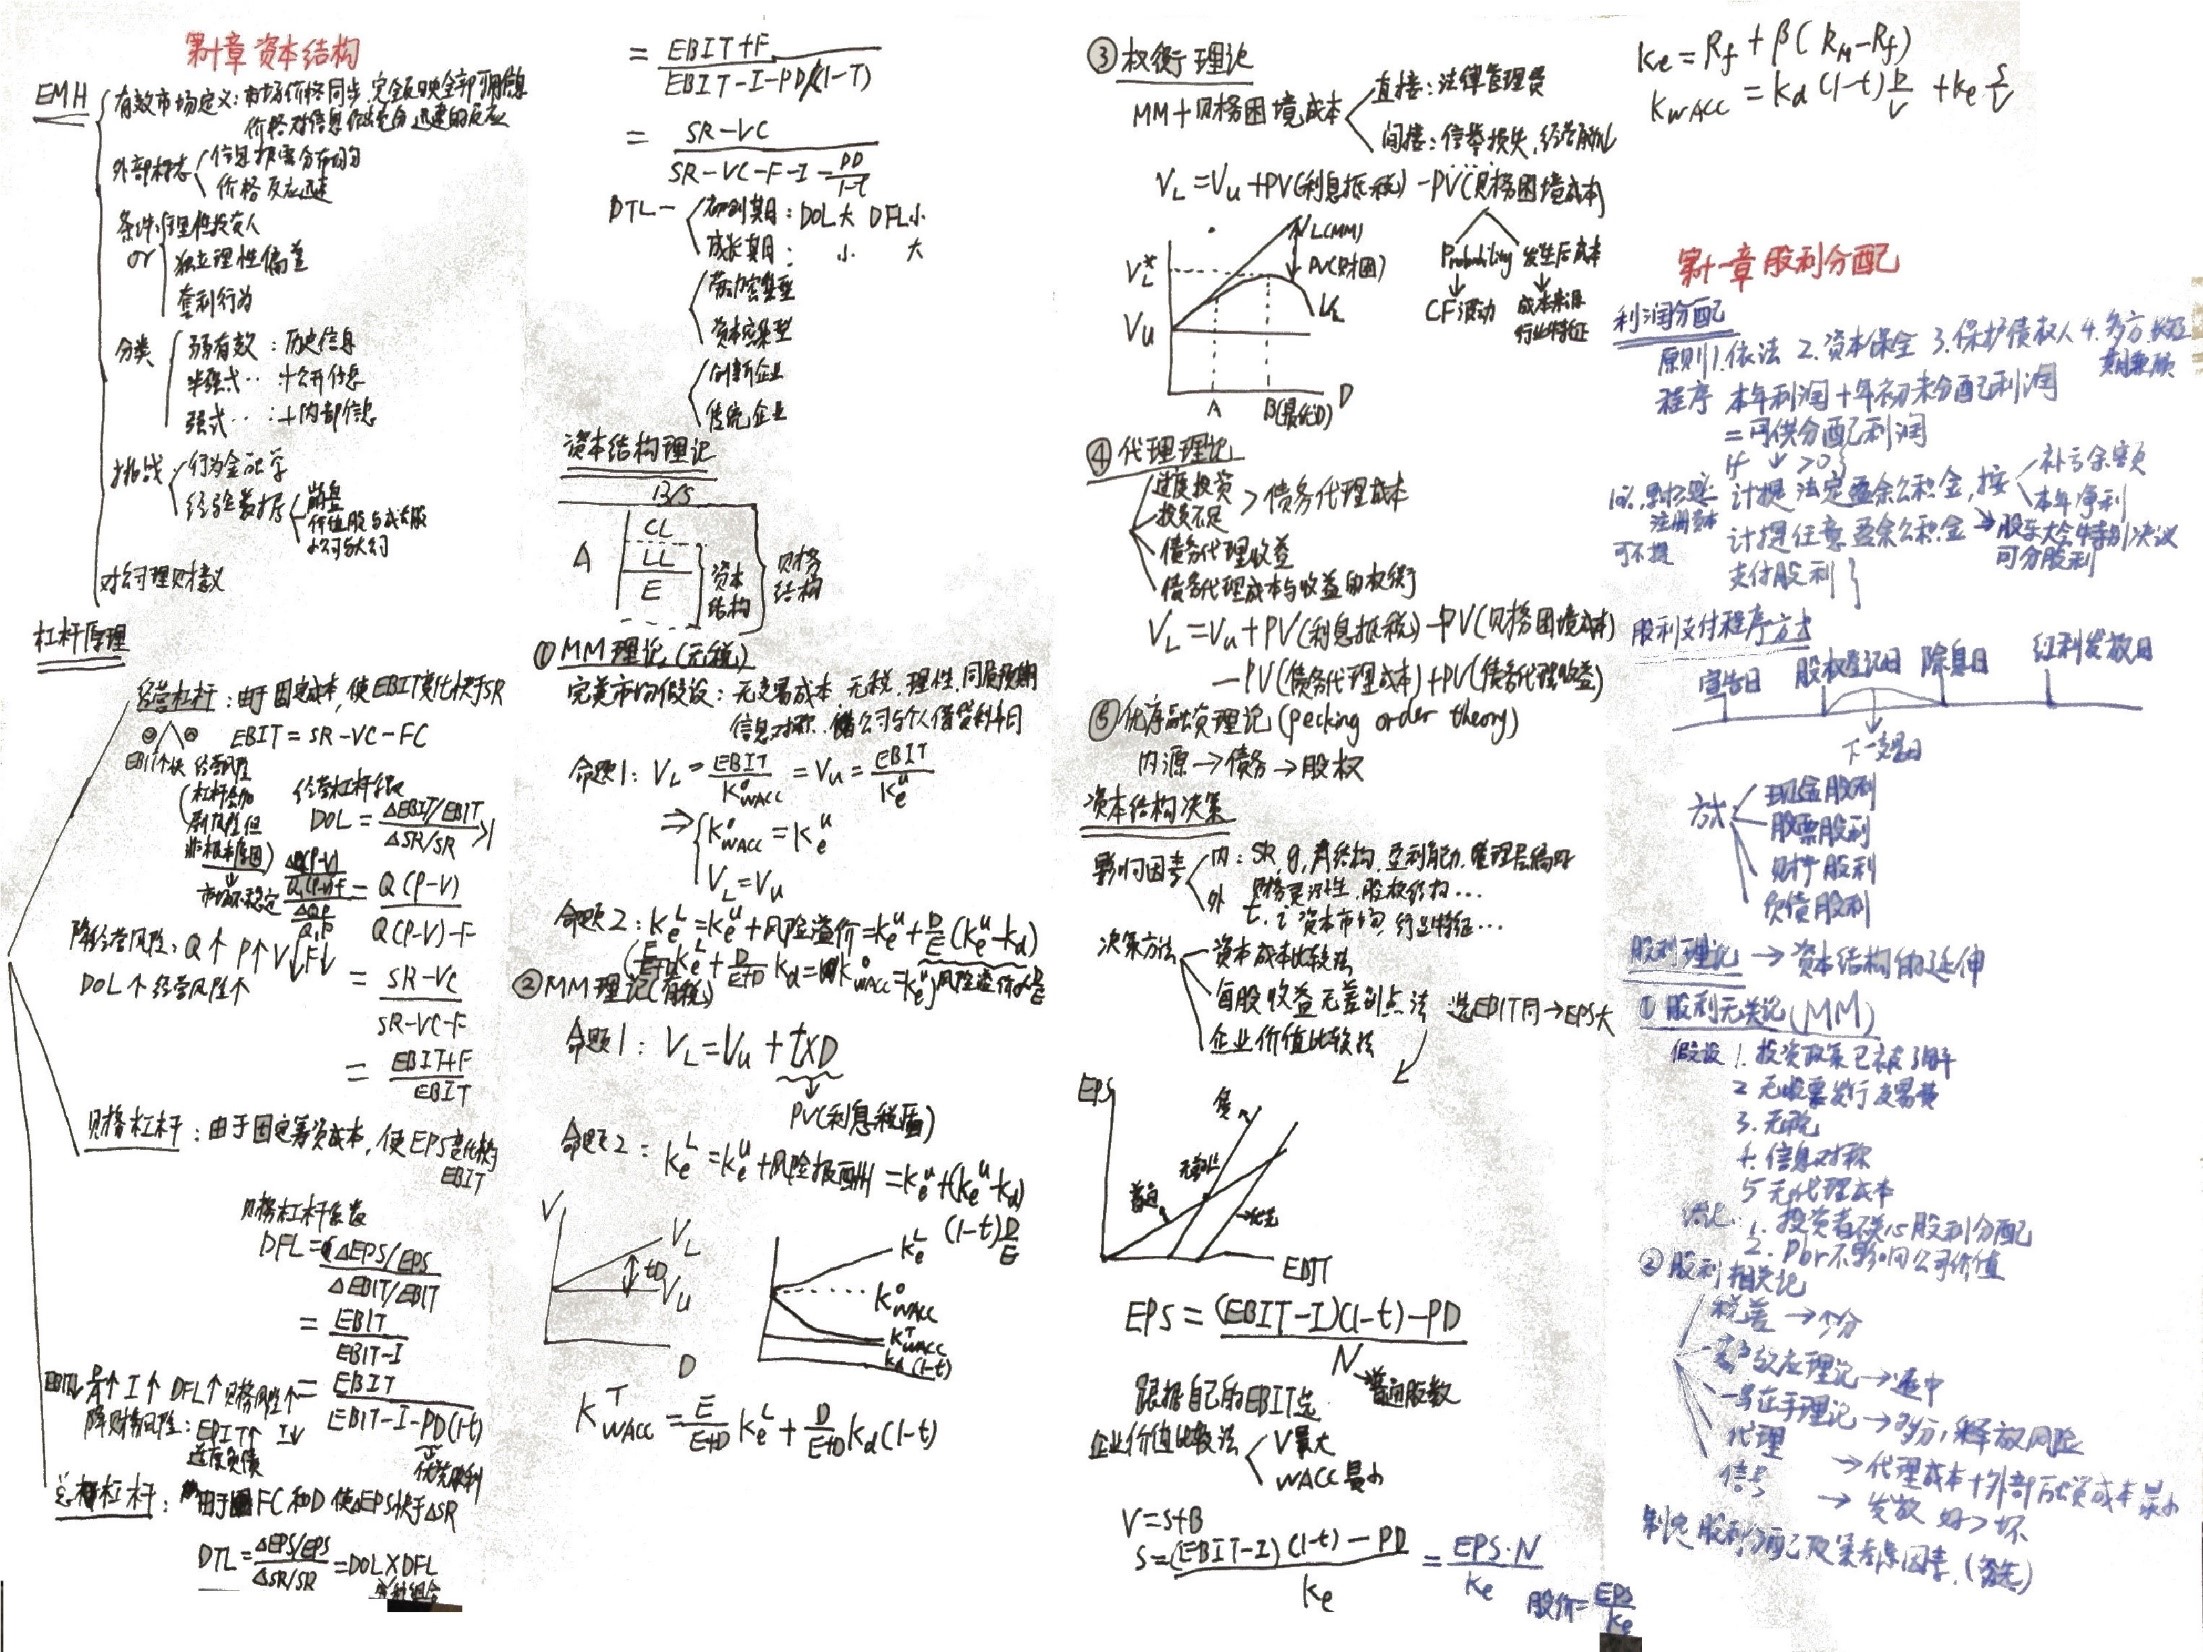 第十章 资本结构
EMH
有效市场定义：市场价格同步、完全反映全部可用信息
价格对信息做充分迅速的反应
外部标志
信息披露分布均匀
价格反应迅速
条件
or
理性投资人
独立理性偏差
套利行为
分类
弱有效：历史信息
半强式‥：+公开信息
强式‥：+内部信息
挑战
行为金融学
经验数据
价值股与成长股
小公司与大公司
对公司理财意义
杠杆原理
经营杠杆：由于固定成本，使EBIT变化快于SR
EBIT=SR-VC-FC
EBIT↑快 经营风险
经营杠杆系数
DOL = ΔEBIT/EBIT / ΔSR/SR >1
市场不稳定
= Q(P-V) / Q(P-V)-F
降经营风险：Q↑ P↑ V↓ F↓
DOL↑经营风险↑
= SR-VC / SR-VC-F
= EBIT+F / EBIT
财务杠杆：由于固定筹资成本，使EPS变化快于
EBIT
财务杠杆系数
DFL = ΔEPS/EPS / ΔEBIT/EBIT
= EBIT / EBIT-I
I↑ DFL↑财务风险↑ = EBIT / EBIT-I-PD(1-t)
降财务风险：EBIT↑ I↓
适度负债
优先股利
总杠杆：由于FC和D 使ΔEPS快于ΔSR
DTL = ΔEPS/EPS / ΔSR/SR = DOL×DFL
= EBIT+F / EBIT-I-PD/(1-T)
= SR-VC / SR-VC-F-I-PD/1-t
DTL
初创期：DOL大 DFL小
成长期： 小 大
劳动密集型
资本密集型
创新企业
传统企业
资本结构理论
B/S
A
CL
LL
E
资本结构
财务结构
① MM理论（无税）
完美市场假设：无交易成本 无税、理性、同质预期
信息对称、公司与个人借贷利率同
命题1：V_L = EBIT / K°_WACC = V_U = EBIT / K_e^u
⇒ K°_WACC = K_e^u
V_L = V_U
命题2：K_e^L = K_e^u + 风险溢价 = K_e^u + D/E (K_e^u - K_d)
② MM理论（有税）
命题1：V_L = V_U + t×D
PV(利息税盾)
命题2：K_e^L = K_e^u + 风险报酬 = K_e^u + (K_e^u - K_d)
(1-t) D/E
V
V_L
tD
V_U
D
K_e^L
K°_WACC
K^T_WACC
K_d(1-t)
K^T_WACC = E/E+D K_e^L + D/E+D K_d(1-t)
③ 权衡理论
MM+财务困境成本
直接：法律管理费
间接：信誉损失、经营
V_L = V_U + PV(利息抵税) - PV(财务困境成本)
Probability 发生后成本
CF波动 成本来源
行业特征
V_L(MM)
PV(财困)
V_L*
V_L
V_U
A
B(最优D)
D
④ 代理理论
过度投资
投资不足
> 债务代理成本
债务代理收益
债务代理成本与收益的权衡
V_L = V_U + PV(利息抵税) - PV(财务困境成本)
- PV(债务代理成本) + PV(债务代理收益)
⑤ 优序融资理论(pecking order theory)
内源→债务→股权
资本结构决策
影响因素
内：SR, g, 资产结构, 盈利能力, 管理层偏好
财务灵活性, 股权结构…
外 t, i, 资本市场, 行业特征…
决策方法
资本成本比较法
每股收益无差别点法 选EBIT同→EPS大
企业价值比较法
EPS
债
无差别
普通
优先
EBIT
EPS = (EBIT-I)(1-t)-PD / N
普通股数
根据自己的EBIT选
企业价值比较法
V最大
WACC最小
V=S+B
S = (EBIT-I)(1-t)-PD / K_e = EPS·N / K_e
股价 = EPS / K_e
K_e = R_f + β(R_M - R_f)
K_WACC = K_d(1-t) B/V + K_e S/V
第十一章 股利分配
利润分配
原则 1.依法 2.资本保全 3.保护债权人 4.多方长短
期兼顾
程序 本年利润+年初未分配利润
=可供分配利润
if ↓ >0
计提法定盈余公积金，按
补亏余额
本年净利
10%，
注册资本
可不提
计提任意盈余公积金→股东大会特别决议
可分股利
支付股利
股利支付程序方式
宣告日 股权登记日 除息日 红利发放日
下一交易日
方式
现金股利
股票股利
财产股利
负债股利
股利理论→资本结构的延伸
① 股利无关论(MM)
假设 1.投资政策已被了解
2 无股票发行交易费
3.无税
4.信息对称
5 无代理成本
结论 1.投资者不关心股利分配
2. 不影响公司价值
② 股利相关论
税差→少分
客户效应理论→适中
一鸟在手理论→多分，释放风险
代理→代理成本+外部融资成本最小
信号→发放 好>坏
制定股利分配政策考虑因素